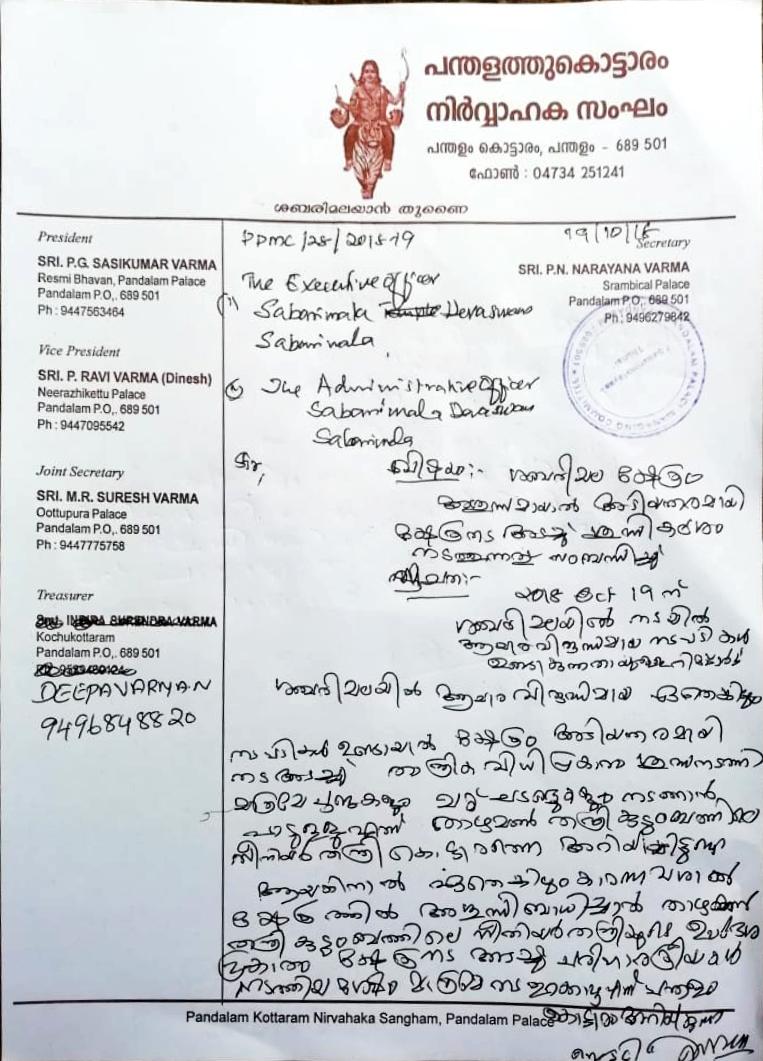 പന്തളത്തുകൊട്ടാരം
നിർവ്വാഹക സംഘം
പന്തളം കൊട്ടാരം, പന്തളം - 689 501
ഫോൺ : 04734 251241
ശബരിമലയാൻ തുണൈ
President
SRI. P.G. SASIKUMAR VARMA
Resmi Bhavan, Pandalam Palace
Pandalam P.O,. 689 501
Ph : 9447563464
Vice President
SRI. P. RAVI VARMA (Dinesh)
Neerazhikettu Palace
Pandalam P.O,. 689 501
Ph : 9447095542
Joint Secretary
SRI. M.R. SURESH VARMA
Oottupura Palace
Pandalam P.O,. 689 501
Ph : 9447775758
Treasurer
Smt. INDIRA SURENDRA VARMA
Kochukottaram
Pandalam P.O,. 689 501
DEEPAVARMAN
9496848820
Secretary
SRI. P.N. NARAYANA VARMA
Srambical Palace
Pandalam P.O,. 689 501
Ph : 9496279842
PPMC/28/2018-19
19/10/18
The Executive Officer
Sabarimala Temple Devaswom
Sabarimala
The Administrative Officer
Sabarimala Devaswom
Sabarimala
Sir,
വിഷയം:- ശബരിമല ക്ഷേത്രം
അശുദ്ധമായാൽ അടിയന്തരമായി
ക്ഷേത്രനട അടച്ച് ശുദ്ധികലശം
നടത്തുന്നത് സംബന്ധിച്ച്
സൂചന:-
2018 Oct 19 ന്
ശബരിമലയിൽ നടയിൽ
ആചാരവിരുദ്ധമായ നടപടികൾ
ശബരിമലയിൽ ആചാര വിരുദ്ധമായ ഏതെങ്കിലും
നടപടികൾ ഉണ്ടായാൽ ക്ഷേത്രം അടിയന്തരമായി
നട അടച്ച് താന്ത്രിക വിധി പ്രകാരം
നടത്താൻ
പാടുള്ളൂ എന്ന് താഴമൺ തന്ത്രി കുടുംബത്തിലെ
സീനിയർ തന്ത്രി
ആയതിനാൽ ഏതെങ്കിലും കാരണവശാൽ
ക്ഷേത്രത്തിൽ അശുദ്ധി ബാധിച്ചാൽ താഴമൺ
തന്ത്രി കുടുംബത്തിലെ സീനിയർ തന്ത്രിയുടെ ഉപദേശ
പ്രകാരം ക്ഷേത്രനട അടച്ചു പരിഹാരക്രിയകൾ
നടത്തിയ ശേഷം മാത്രമേ നട തുറക്കാവൂ എന്ന് പന്തളം
കൊട്ടാരം അറിയിക്കുന്നു
Pandalam Kottaram Nirvahaka Sangham, Pandalam Palace